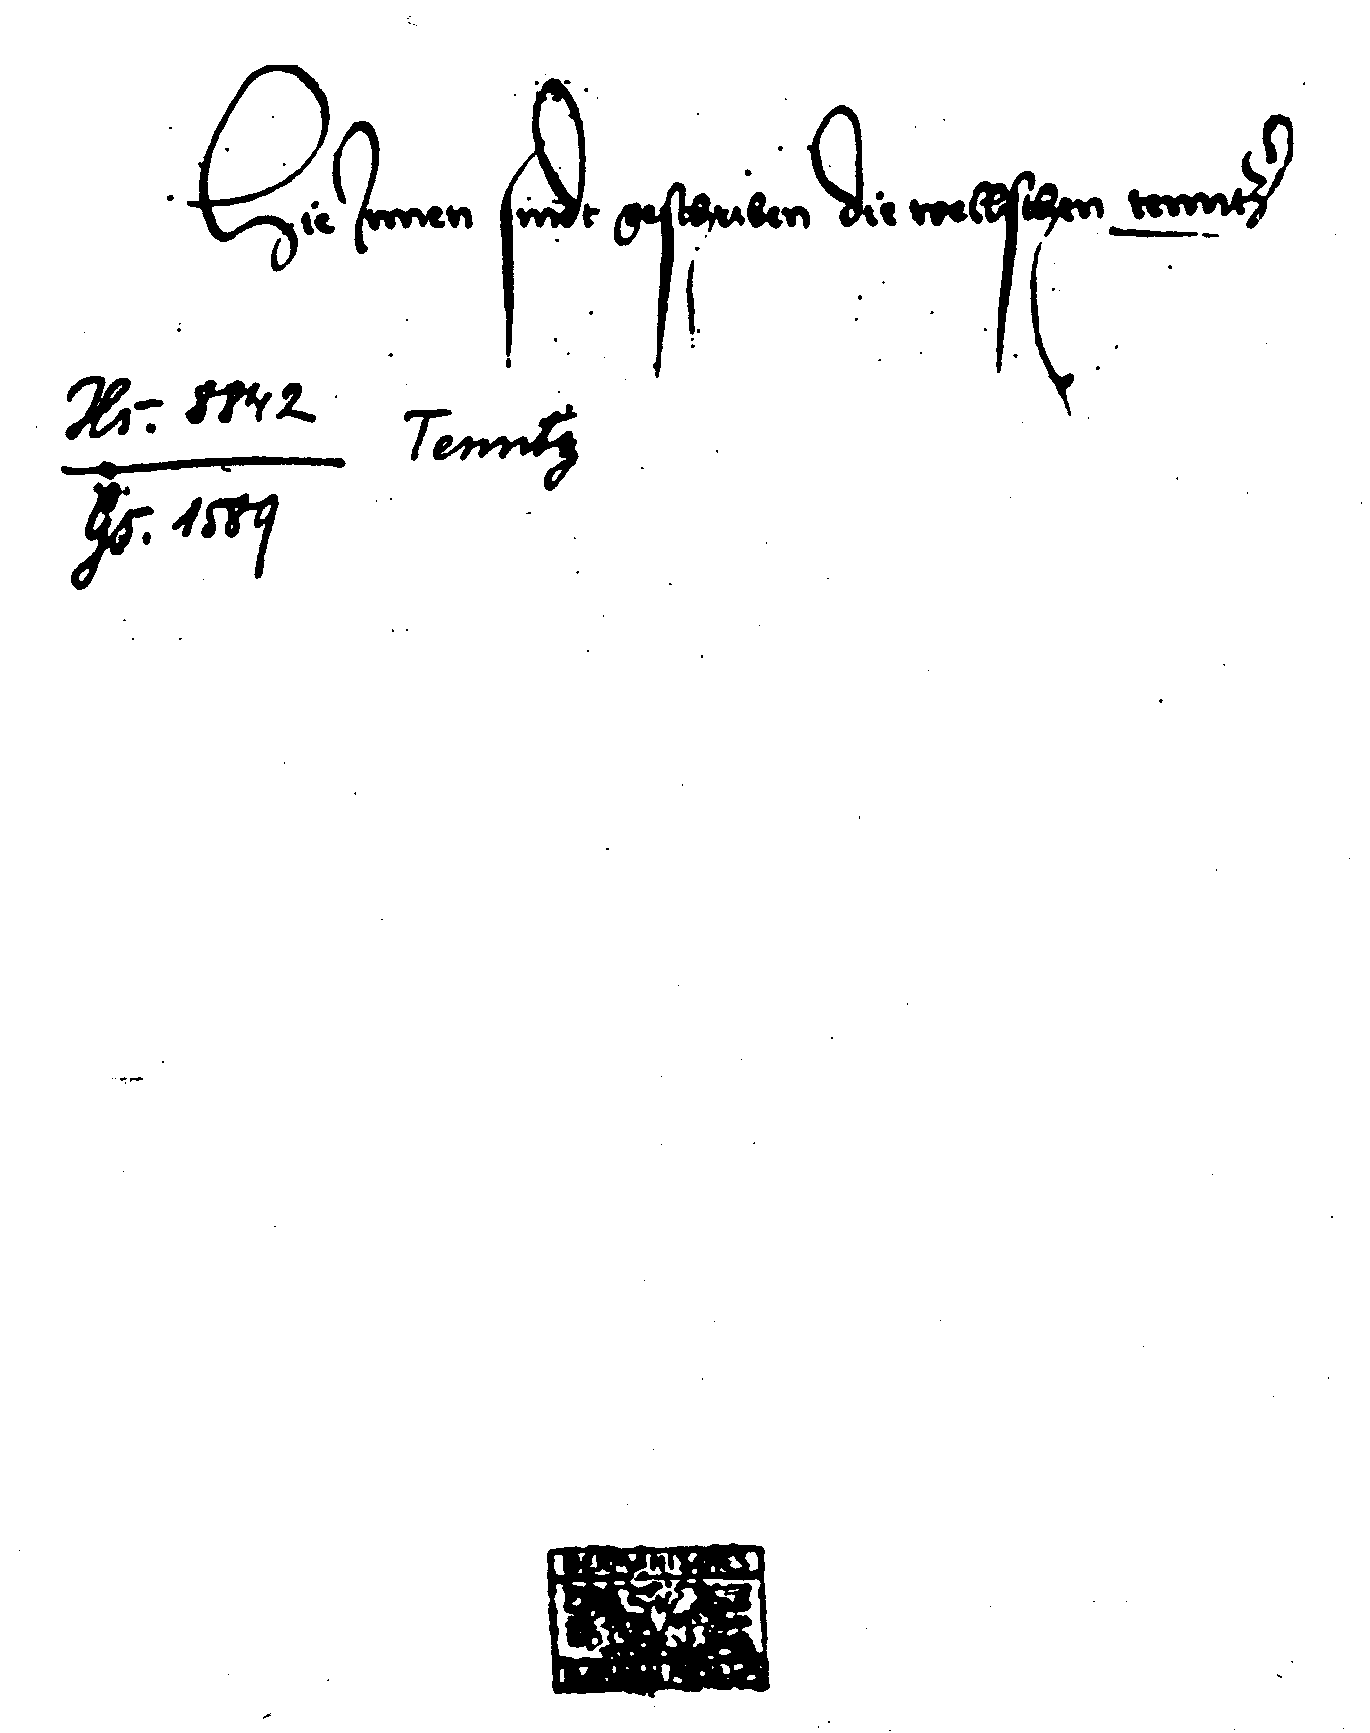 Hie Jnnen sindt geschriben die wellschen tenntz
Hs. 8842
Tenntz
Gs. 1589